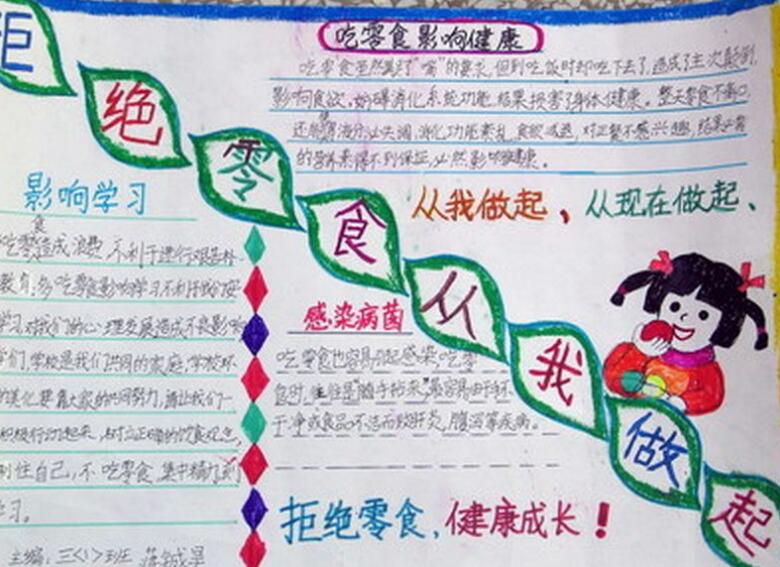 拒绝零食从我做起
吃零食影响健康
吃零食虽然满足了"嘴"的要求,但到吃饭时却吃下去了,造成了主次颠倒,
影响食欲,妨碍消化系统功能,结果损害了身体健康。整天零食不离口,
消化功能紊乱,食欲减退,对正餐不感兴趣,结果必需
的营养素得不到保证,必然影响健康。
从我做起,从现在做起、
影响学习
吃零食造成浪费,不利于进行艰苦朴
教育,多吃零食影响学习不利于我们安
学习,对我们的心理发展造成不良影响
学们,学校是我们共同的家庭,学校环
的美化要靠大家的共同努力,请让我们一
积极行动起来,树立正确的饮食观念,
到住自己,不吃零食,集中精力
学习。
主编:三<1>班
感染病菌
吃零食也容易引起感染,吃零
食时,往往是"随手拈来",最容易由于不
干净或食品不洁而致肝炎,腹泻等疾病。
拒绝零食,健康成长!